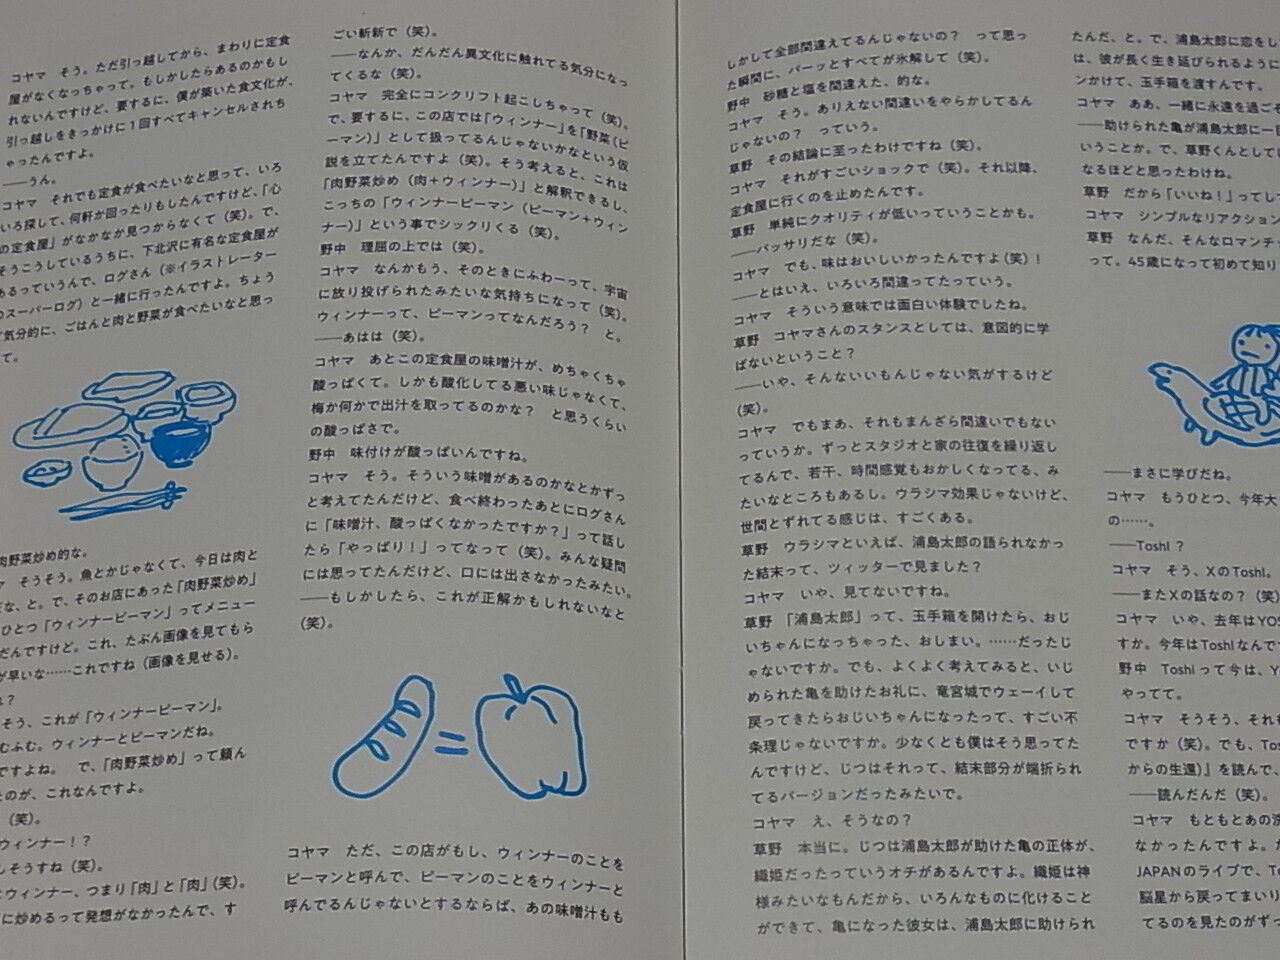 コヤマ　そう。ただ引っ越してから、まわりに定食
屋がなくなっちゃって。もしかしたらあるのかもし
れないんですけど、要するに、僕が築いた食文化が、
引っ越しをきっかけに1回すべてキャンセルされち
ゃったんですよ。
――うん。
コヤマ　それでも定食が食べたいなと思って、いろ
いろ探して、何軒か回ったりもしたんですけど、「心
の定食屋」がなかなか見つからなくて（笑）。で、
そうこうしているうちに、下北沢に有名な定食屋が
あるっていうんで、ログさん（※イラストレーター
のスーパーログ）と一緒に行ったんですよ。ちょう
ど気分的に、ごはんと肉と野菜が食べたいなと思っ
て。
肉野菜炒め的な。
そうそう。魚とかじゃなくて、今日は肉と
だな、と。で、そのお店にあった「肉野菜炒め」
ひとつ「ウィンナーピーマン」ってメニュー
だんですけど。これ、たぶん画像を見てもら
が早いな……これですね（画像を見せる）。
？
そう、これが「ウィンナーピーマン」。
むふむ。ウィンナーとピーマンだね。
ですよね。　で、「肉野菜炒め」って頼ん
たのが、これなんですよ。
（笑）。
ウィンナー！？
しそうすね（笑）。
ウィンナー、つまり「肉」と「肉」（笑）。
に炒めるって発想がなかったんで、す
ごい斬新で（笑）。
――なんか、だんだん異文化に触れてる気分になっ
てくるな（笑）。
コヤマ　完全にコンクリフト起こしちゃって（笑）。
で、要するに、この店では「ウィンナー」を「野菜（ピ
ーマン）」として扱ってるんじゃないかなという仮
説を立てたんですよ（笑）。そう考えると、これは
「肉野菜炒め（肉＋ウィンナー）」と解釈できるし、
こっちの「ウィンナーピーマン（ピーマン＋ウィン
ナー）」という事でシックリくる（笑）。
野中　理屈の上では（笑）。
コヤマ　なんかもう、そのときにふわーって、宇宙
に放り投げられたみたいな気持ちになって（笑）。
ウィンナーって、ピーマンってなんだろう？　と。
――あはは（笑）。
コヤマ　あとこの定食屋の味噌汁が、めちゃくちゃ
酸っぱくて。しかも酸化してる悪い味じゃなくて、
梅か何かで出汁を取ってるのかな？　と思うくらい
の酸っぱさで。
野中　味付けが酸っぱいんですね。
コヤマ　そう。そういう味噌があるのかなとかずっ
と考えてたんだけど、食べ終わったあとにログさん
に「味噌汁、酸っぱくなかったですか？」って話し
たら「やっぱり！」ってなって（笑）。みんな疑問
には思ってたんだけど、口には出さなかったみたい。
――もしかしたら、これが正解かもしれないなと
（笑）。
コヤマ　ただ、この店がもし、ウィンナーのことを
ピーマンと呼んで、ピーマンのことをウィンナーと
呼んでるんじゃないとするならば、あの味噌汁もも
しかして全部間違えてるんじゃないの？　って思っ
た瞬間に、パーッとすべてが氷解して（笑）。
野中　砂糖と塩を間違えた、的な。
コヤマ　そう。ありえない間違いをやらかしてるん
じゃないの？　っていう。
草野　その結論に至ったわけですね（笑）。
コヤマ　それがすごいショックで（笑）。それ以降、
定食屋に行くのを止めたんです。
草野　単純にクオリティが低いっていうことかも。
――バッサリだな（笑）。
コヤマ　でも、味はおいしいかったんですよ（笑）！
――とはいえ、いろいろ間違ってたっていう。
コヤマ　そういう意味では面白い体験でしたね。
草野　コヤマさんのスタンスとしては、意図的に学
ばないということ？
――いや、そんないいもんじゃない気がするけど
（笑）。
コヤマ　でもまあ、それもまんざら間違いでもない
っていうか。ずっとスタジオと家の往復を繰り返し
てるんで、若干、時間感覚もおかしくなってる、み
たいなところもあるし。ウラシマ効果じゃないけど、
世間とずれてる感じは、すごくある。
草野　ウラシマといえば、浦島太郎の語られなかっ
た結末って、ツィッターで見ました？
コヤマ　いや、見てないですね。
草野　「浦島太郎」って、玉手箱を開けたら、おじ
いちゃんになっちゃった、おしまい。……だったじ
ゃないですか。でも、よくよく考えてみると、いじ
められた亀を助けたお礼に、竜宮城でウェーイして
戻ってきたらおじいちゃんになったって、すごい不
条理じゃないですか。少なくとも僕はそう思ってた
んですけど、じつはそれって、結末部分が端折られ
てるバージョンだったみたいで。
コヤマ　え、そうなの？
草野　本当に。じつは浦島太郎が助けた亀の正体が、
織姫だったっていうオチがあるんですよ。織姫は神
様みたいなもんだから、いろんなものに化けること
ができて、亀になった彼女は、浦島太郎に助けられ
たんだ、と。で、浦島太郎に恋をし
は、彼が長く生き延びられるように
ンかけて、玉手箱を渡すんです。
コヤマ　ああ、一緒に永遠を過ごそ
――助けられた亀が浦島太郎に一目
いうことか。で、草野くんとしてい
なるほどと思ったわけね。
草野　だから「いいね！」ってし
コヤマ　シンプルなリアクション
草野　なんだ、そんなロマンチ
って。45歳になって初めて知り
――まさに学びだね。
コヤマ　もうひとつ、今年大
の……。
――Toshl？
コヤマ　そう、XのToshl。
――またXの話なの？（笑）
コヤマ　いや、去年はYOS
すか。今年はToshlなんで
野中　Toshlって今は、Y
やってて。
コヤマ　そうそう、それも
ですか（笑）。でも、Tos
からの生還）』を読んで、
――読んだんだ（笑）。
コヤマ　もともとあの洗
なかったんですよ。だ
JAPANのライブで、To
脳星から戻ってまいり
てるのを見たのがずっ